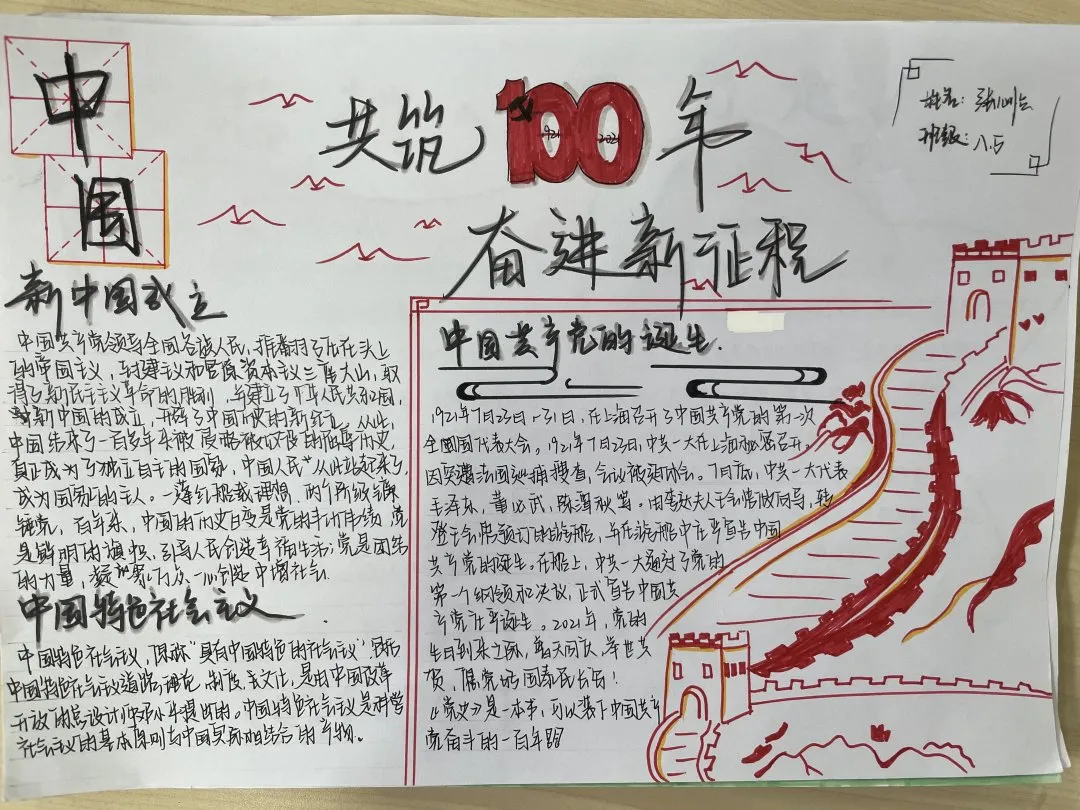 中
国
共筑100年
1921 2021
奋进新征程
姓名:
班级: 八.5
新中国成立
中国共产党领导全国各族人民,推翻了压在头上
的帝国主义,封建主义和官僚资本主义三座大山,取
得了新民主主义革命的胜利,并建立了中华人民共和国,
新中国的成立,开辟了中国历史的新纪元。从此,
中国结束了一百多年来被侵略被奴役的屈辱历史
真正成为了独立自主的国家,中国人民"从此站起来了,
成为国家的主人。一
百年来,中国的历史巨变是党的丰功伟绩,党
是鲜明的旗帜,引导人民创造幸福生活;党是团结
的力量,凝聚
中国特色社会主义
中国特色社会主义,原称"具有中国特色的社会主义"包括
中国特色社会主义道路,理论,制度,文化,是由中国改革
开放的总设计师邓小平提出的。中国特色社会主义是科学
社会主义的基本原则与中国实际相结合的产物。
中国共产党的诞生.
1921年7月23日-31日,在上海召开了中国共产党的第一次
全国代表大会。1921年7月23日,中共一大在上海秘密召开。
因突遭法国巡捕搜查,会议被迫休会。7月底,中共一大代表
毛泽东,董必武,陈潭秋等。由李达夫人王会悟做向导,转
登王会悟预订的游船,并在游船中庄严宣告中国
共产党的诞生。在船上,中共一大通过了党的
第一个纲领和决议,正式宣告中国共
产党庄严诞生。2021年,党的
生日到来之际,普天同庆,举世共
贺,愿党好国泰民
《党史》是一本书,可以装下中国共产
党奋斗的一百年